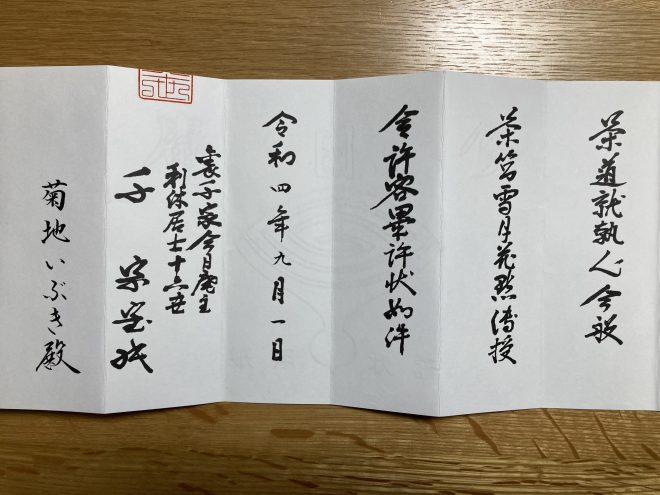 茶道就執心今般
茶筥雪月花點傳授
令許容畢許状如件
令和四年九月一日
裏千家今日庵主
利休居士十六世
千宗室
菊地いぶき殿